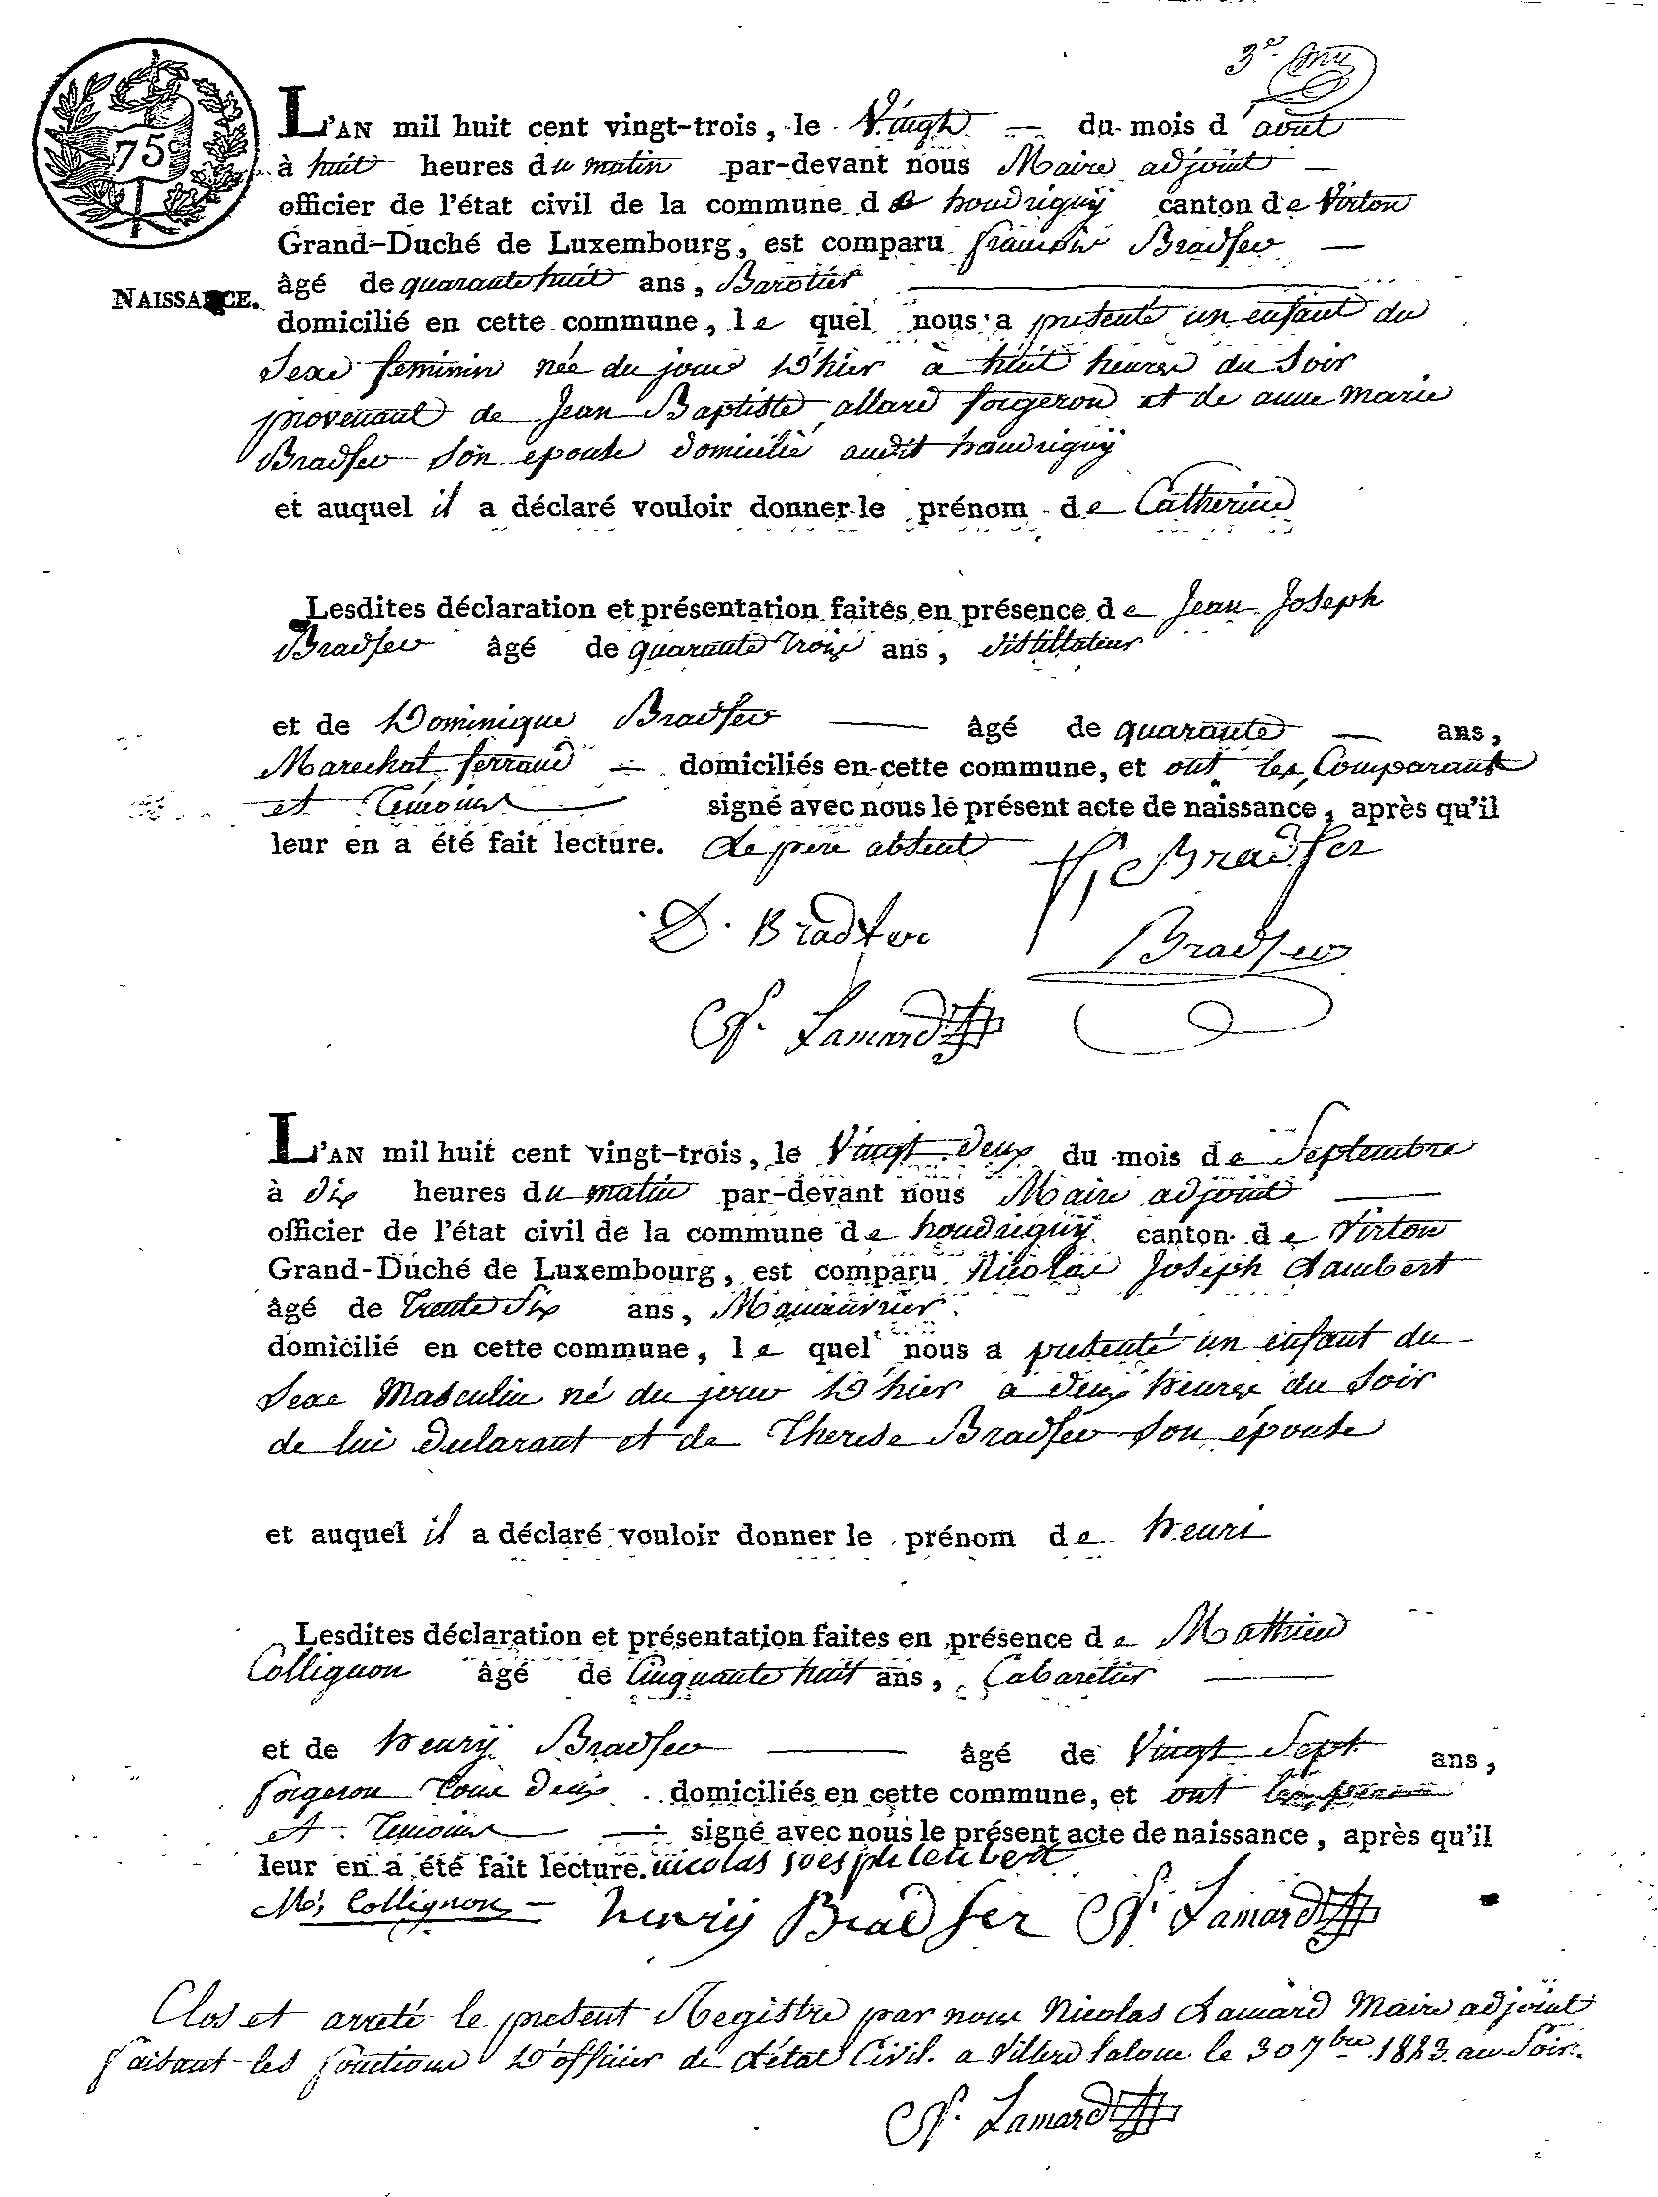 3e
75c
L'AN mil huit cent vingt-trois, le Vingt du mois d'aout
à huit heures du matin par-devant nous Maire adjoint
officier de l'état civil de la commune de houdrigny canton de Virton
Grand-Duché de Luxembourg, est comparu françois Bradfer
NAISSANCE.
âgé de quarante huit ans, Barotier
domicilié en cette commune, le quel nous a presenté un enfant du
Sexe feminin née du jour D'hier à huit heures du Soir
provenant de Jean Baptiste allard forgeron et de anne marie
Bradfer Son epouse domicilié audit houdrigny
et auquel il a déclaré vouloir donner le prénom de Catherine
Lesdites déclaration et présentation faites en présence de Jean Joseph
Bradfer âgé de quarante Trois ans, distillateur
et de Dominique Bradfer âgé de quarante ans,
Marechal ferrand domiciliés en cette commune, et ont les Comparants
et Temoins signé avec nous le présent acte de naissance, après qu'il
leur en a été fait lecture. Le pere absent Bradfer
D. Bradfer
Bradfer
N. Lamard
L'AN mil huit cent vingt-trois, le Vingt Deux du mois de Septembre
à dix heures du matin par-devant nous Maire adjoint
officier de l'état civil de la commune de houdrigny canton de Virton
Grand-Duché de Luxembourg, est comparu Nicolas Joseph Lambert
âgé de Trente Six ans, Manouvrier
domicilié en cette commune, le quel nous a presenté un enfant du
Sexe Masculin né du jour D'hier a deux heures du Soir
de lui Declarant et de Therese Bradfer Son épouse
et auquel il a déclaré vouloir donner le prénom de henri
Lesdites déclaration et présentation faites en présence de Mathieu
Collignon âgé de Cinquante huit ans, Cabaretier
et de henrÿ Bradfer âgé de Vingt Sept ans,
forgeron Tous deux domiciliés en cette commune, et ont les pere
et Temoins signé avec nous le présent acte de naissance, après qu'il
leur en a été fait lecture. nicolas joesph lembert
M, Collignon henrÿ Bradfer N. Lamard
Clos et arreté le present Registre par nous Nicolas Lamard Maire adjoint
faisant les fonctions D'officier de L'état Civil. a Villers laloue le 30 7bre 1823 au Soir.
N. Lamard